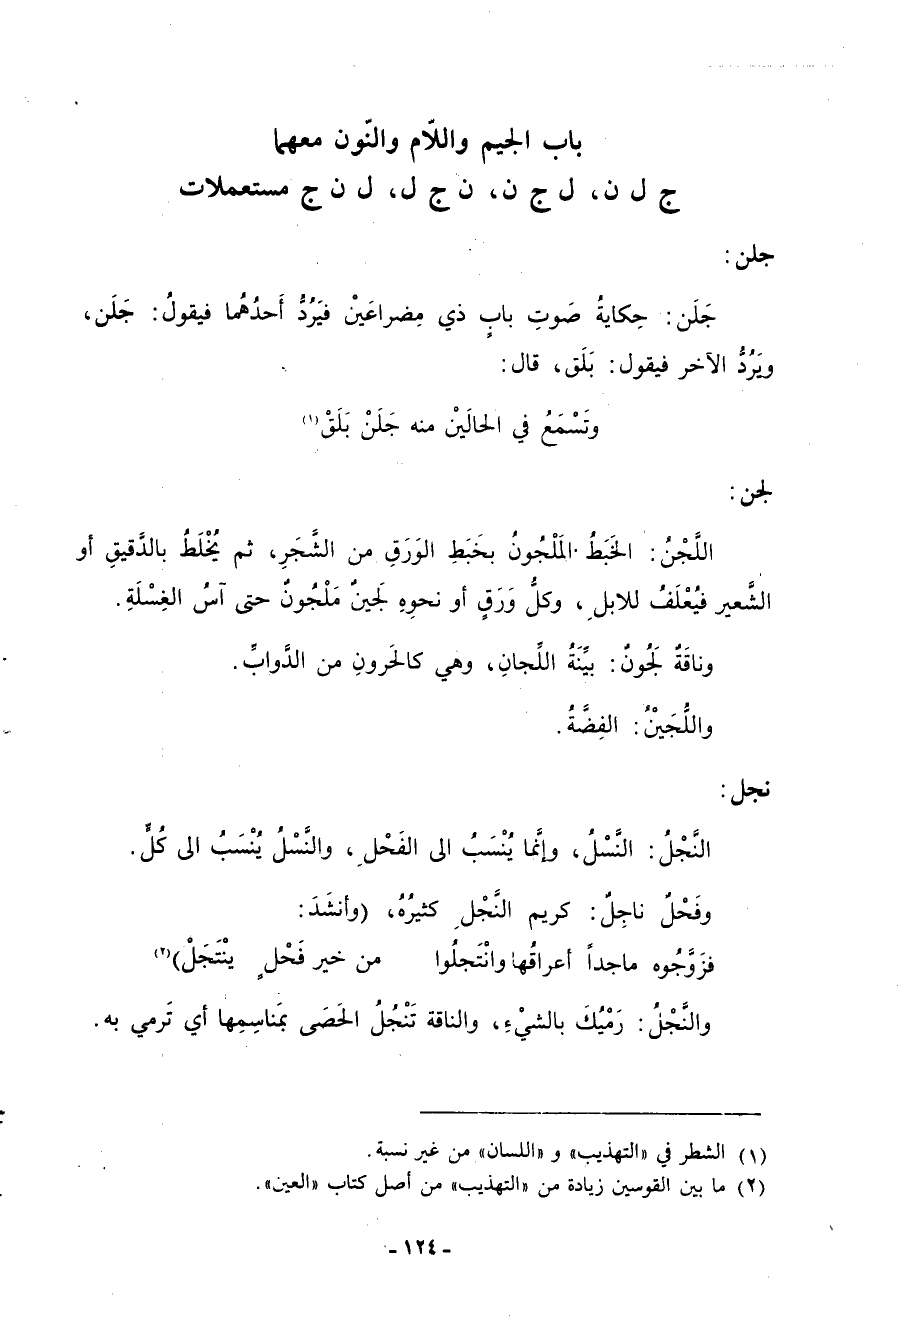 باب الجيم واللّام والنّون معهما
ج ل ن، ل ج ن، ن ج ل، ل ن ج مستعملات
جلن:
جَلَن: حِكايةُ صَوتِ بابٍ ذي مِصْراعَيْنِ فَيَرُدُّ أَحدُهُما فيقولُ: جَلَن،
ويَرُدُّ الآخر فيقول: بَلَق، قال:
وتَسْمَعُ في الحالَيْنِ منه جَلَنْ بَلَقْ(١)
لجن:
اللَّجْنُ: الخَبَطُ المَلْجُونُ بخَبَطِ الوَرَقِ من الشَّجَرِ، ثم يُخْلَطُ بالدَّقيقِ أو
الشَّعيرِ فيُعْلَفُ للابلِ، وكلُّ وَرَقٍ أو نحوِهِ لَجينٌ مَلْجُونٌ حتى آسُ الغِسْلَةِ.
وناقَةٌ لَجُونٌ: بيِّنَةُ اللِّجانِ، وهي كالحَرونِ من الدَّوابِّ.
واللُّجَيْنُ: الفِضَّةُ.
نجل:
النَّجْلُ: النَّسْلُ، وإنَّما يُنْسَبُ الى الفَحْلِ، والنَّسْلُ يُنْسَبُ الى كُلٍّ.
وفَحْلٌ ناجِلٌ: كريم النَّجْلِ كثيرُهُ، (وأنشَدَ:
فزَوَّجُوه ماجداً أعراقُها وانْتَجلُوا من خير فَحْلٍ ينْتَجَلْ)(٢)
والنَّجْلُ: رَمْيُكَ بالشيْءِ، والناقة تَنْجُلُ الحَصَى بمَناسِمِها أي تَرمي به.
(١) الشطر في «التهذيب» و «اللسان» من غير نسبة.
(٢) ما بين القوسين زيادة من «التهذيب» من أصل كتاب «العين».
- ١٢٤ -